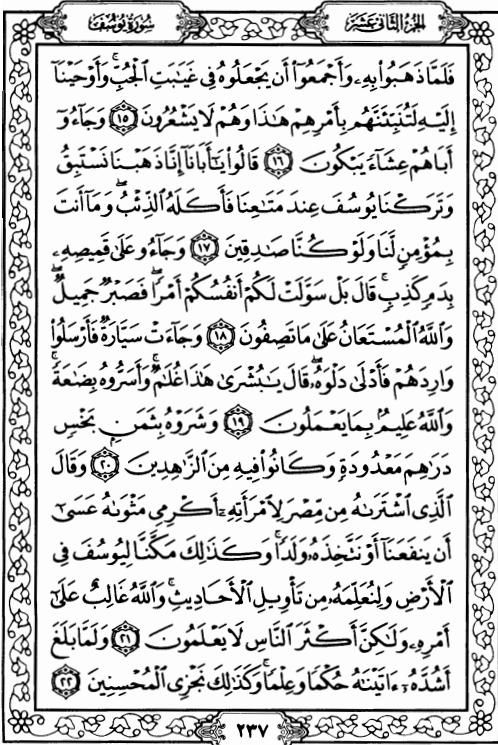 الجزء الثاني عشر سورة يوسف
فَلَمَّا ذَهَبُوا۟ بِهِۦ وَأَجْمَعُوٓا۟ أَن يَجْعَلُوهُ فِى غَيَٰبَتِ ٱلْجُبِّ ۚ وَأَوْحَيْنَآ
إِلَيْهِ لَتُنَبِّئَنَّهُم بِأَمْرِهِمْ هَٰذَا وَهُمْ لَا يَشْعُرُونَ ١٥ وَجَآءُوٓ
أَبَاهُمْ عِشَآءً يَبْكُونَ ١٦ قَالُوا۟ يَٰٓأَبَانَآ إِنَّا ذَهَبْنَا نَسْتَبِقُ
وَتَرَكْنَا يُوسُفَ عِندَ مَتَٰعِنَا فَأَكَلَهُ ٱلذِّئْبُ ۖ وَمَآ أَنتَ
بِمُؤْمِنٍ لَّنَا وَلَوْ كُنَّا صَٰدِقِينَ ١٧ وَجَآءُو عَلَىٰ قَمِيصِهِۦ
بِدَمٍ كَذِبٍ ۚ قَالَ بَلْ سَوَّلَتْ لَكُمْ أَنفُسُكُمْ أَمْرًا ۖ فَصَبْرٌ جَمِيلٌ ۖ
وَٱللَّهُ ٱلْمُسْتَعَانُ عَلَىٰ مَا تَصِفُونَ ١٨ وَجَآءَتْ سَيَّارَةٌ فَأَرْسَلُوا۟
وَارِدَهُمْ فَأَدْلَىٰ دَلْوَهُۥ ۖ قَالَ يَٰبُشْرَىٰ هَٰذَا غُلَٰمٌ ۚ وَأَسَرُّوهُ بِضَٰعَةً ۚ
وَٱللَّهُ عَلِيمٌۢ بِمَا يَعْمَلُونَ ١٩ وَشَرَوْهُ بِثَمَنٍۭ بَخْسٍ
دَرَٰهِمَ مَعْدُودَةٍ وَكَانُوا۟ فِيهِ مِنَ ٱلزَّٰهِدِينَ ٢٠ وَقَالَ
ٱلَّذِى ٱشْتَرَىٰهُ مِن مِّصْرَ لِٱمْرَأَتِهِۦٓ أَكْرِمِى مَثْوَىٰهُ عَسَىٰٓ
أَن يَنفَعَنَآ أَوْ نَتَّخِذَهُۥ وَلَدًا ۚ وَكَذَٰلِكَ مَكَّنَّا لِيُوسُفَ فِى
ٱلْأَرْضِ وَلِنُعَلِّمَهُۥ مِن تَأْوِيلِ ٱلْأَحَادِيثِ ۚ وَٱللَّهُ غَالِبٌ عَلَىٰٓ
أَمْرِهِۦ وَلَٰكِنَّ أَكْثَرَ ٱلنَّاسِ لَا يَعْلَمُونَ ٢١ وَلَمَّا بَلَغَ
أَشُدَّهُۥٓ ءَاتَيْنَٰهُ حُكْمًا وَعِلْمًا ۚ وَكَذَٰلِكَ نَجْزِى ٱلْمُحْسِنِينَ ٢٢
٢٣٧